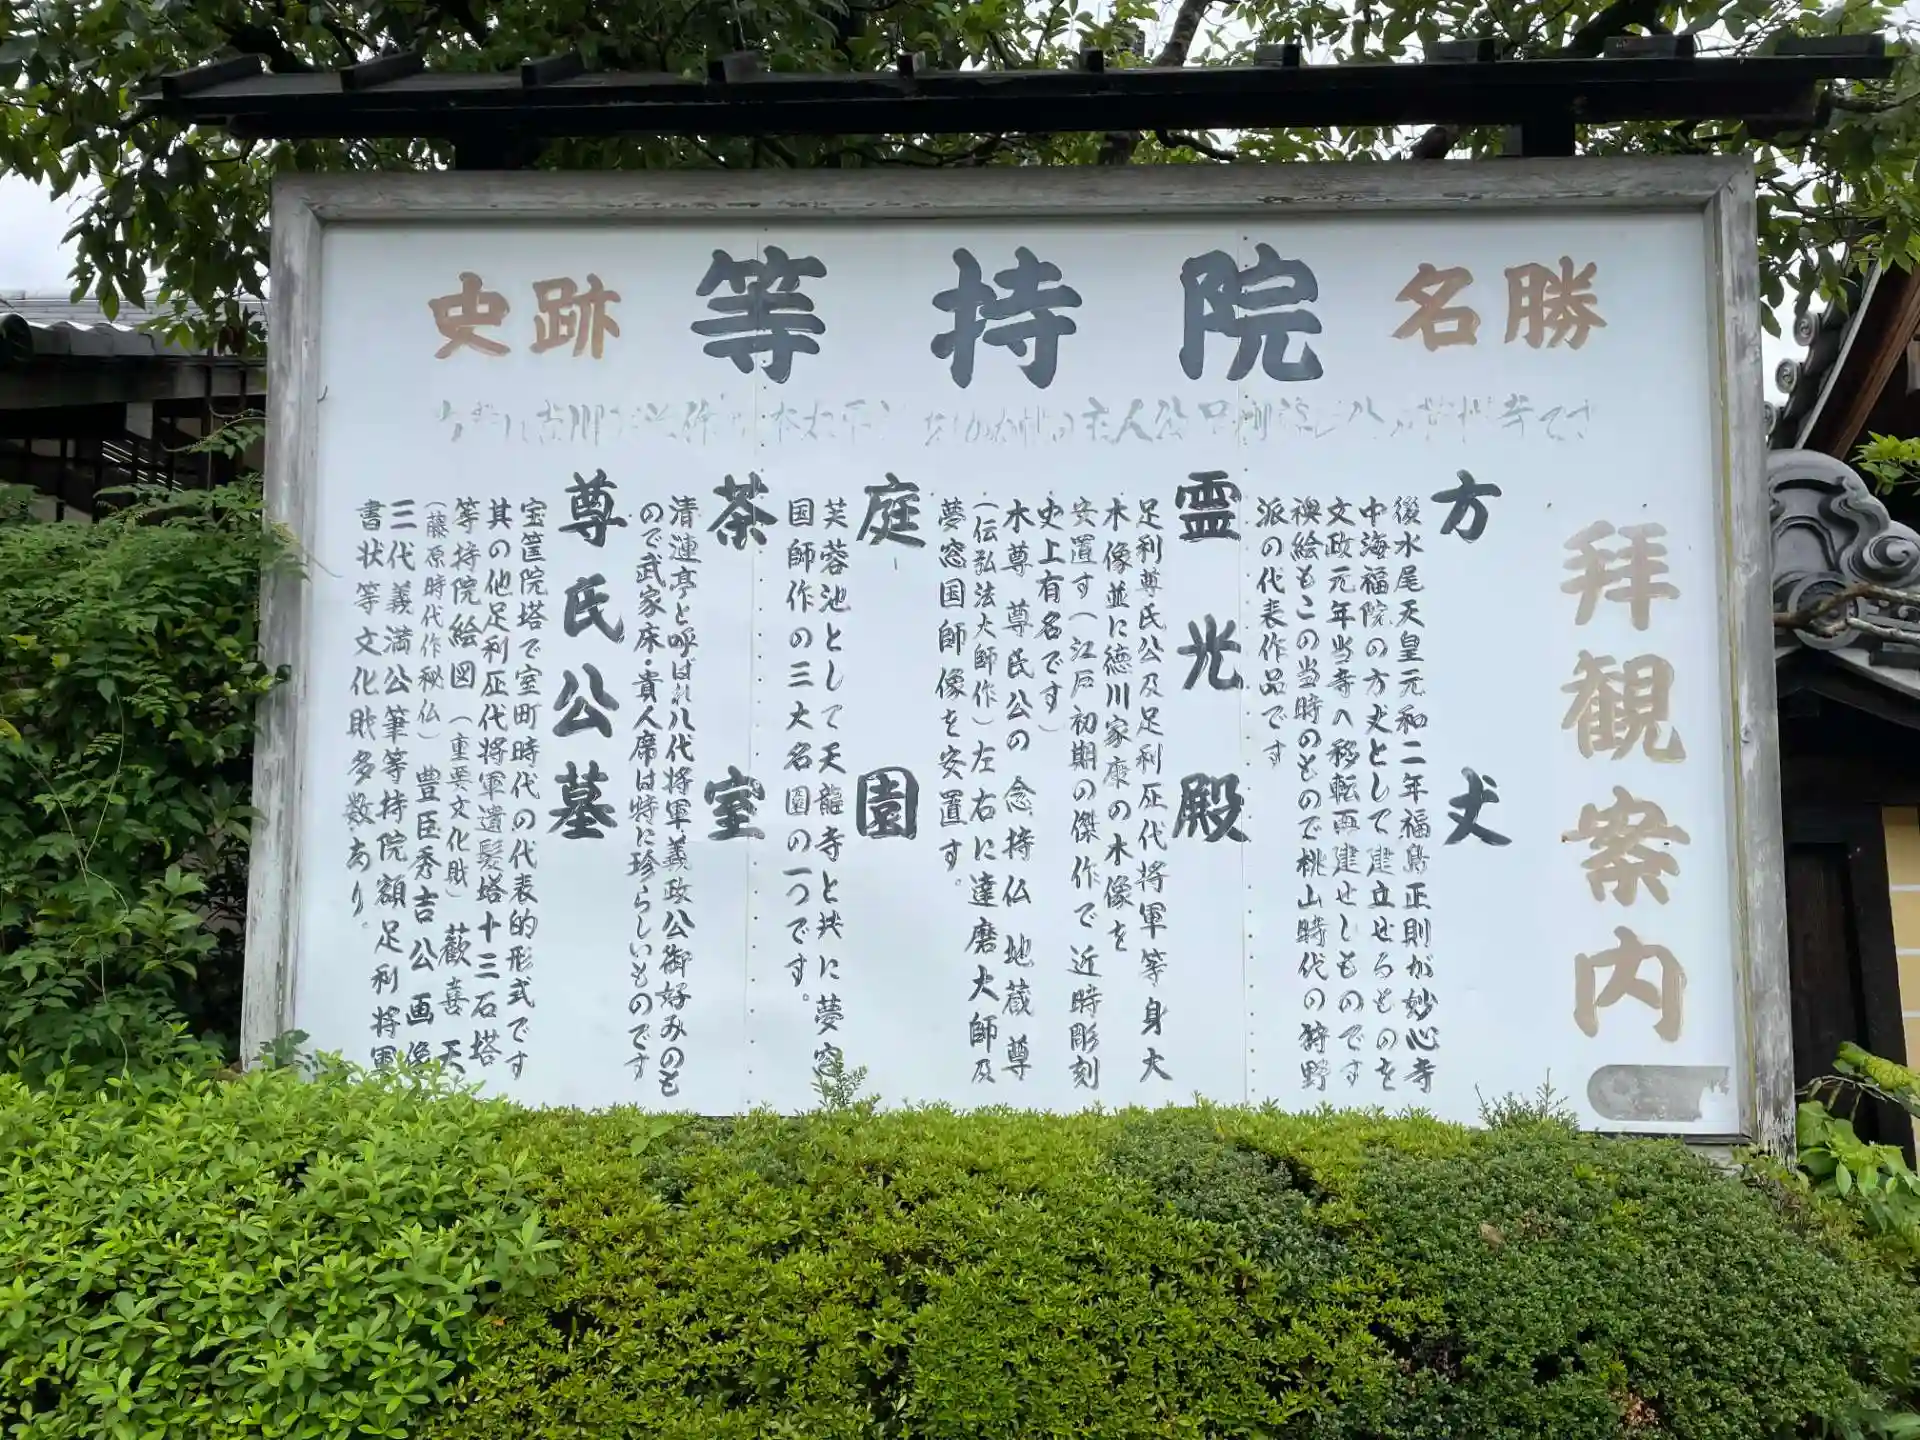 史跡 等持院 名勝
拝観案内
方丈
後水尾天皇元和二年福島正則が妙心寺
中海福院の方丈として建立せるものを
文政元年当寺へ移転再建せしものです
襖絵もこの当時のもので桃山時代の狩野
派の代表作品です
霊光殿
足利尊氏公及足利歴代将軍等身大
木像並に徳川家康の木像を
安置す(江戸初期の傑作で近時彫刻
史上有名です)
本尊 尊氏公の 念持仏 地蔵尊
(伝弘法大師作)左右に達磨大師及
夢窓国師像を安置す。
庭園
芙蓉池として天龍寺と共に夢窓
国師作の三大名園の一つです。
茶室
清漣亭と呼ばれ八代将軍義政公御好みのも
ので武家床・貴人席は特に珍らしいものです
尊氏公墓
宝筐院塔で室町時代の代表的形式です
其の他足利歴代将軍遺髪塔十三石塔
等持院絵図(重要文化財)歓喜天
(藤原時代作秘仏) 豊臣秀吉公画像
三代義満公筆等持院額足利将軍
書状等文化財多数あり。